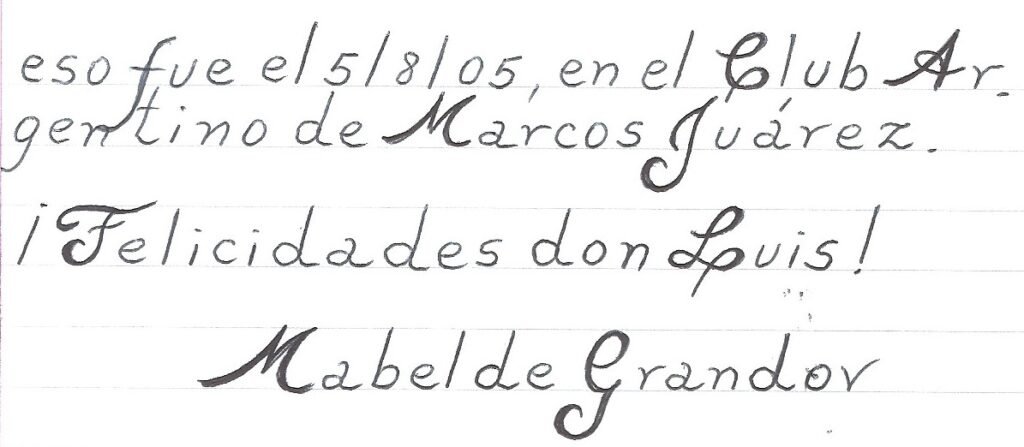 eso fue el 5/8/05, en el Club Ar-
gentino de Marcos Juárez.
¡Felicidades don Luis!
Mabel de Grandor